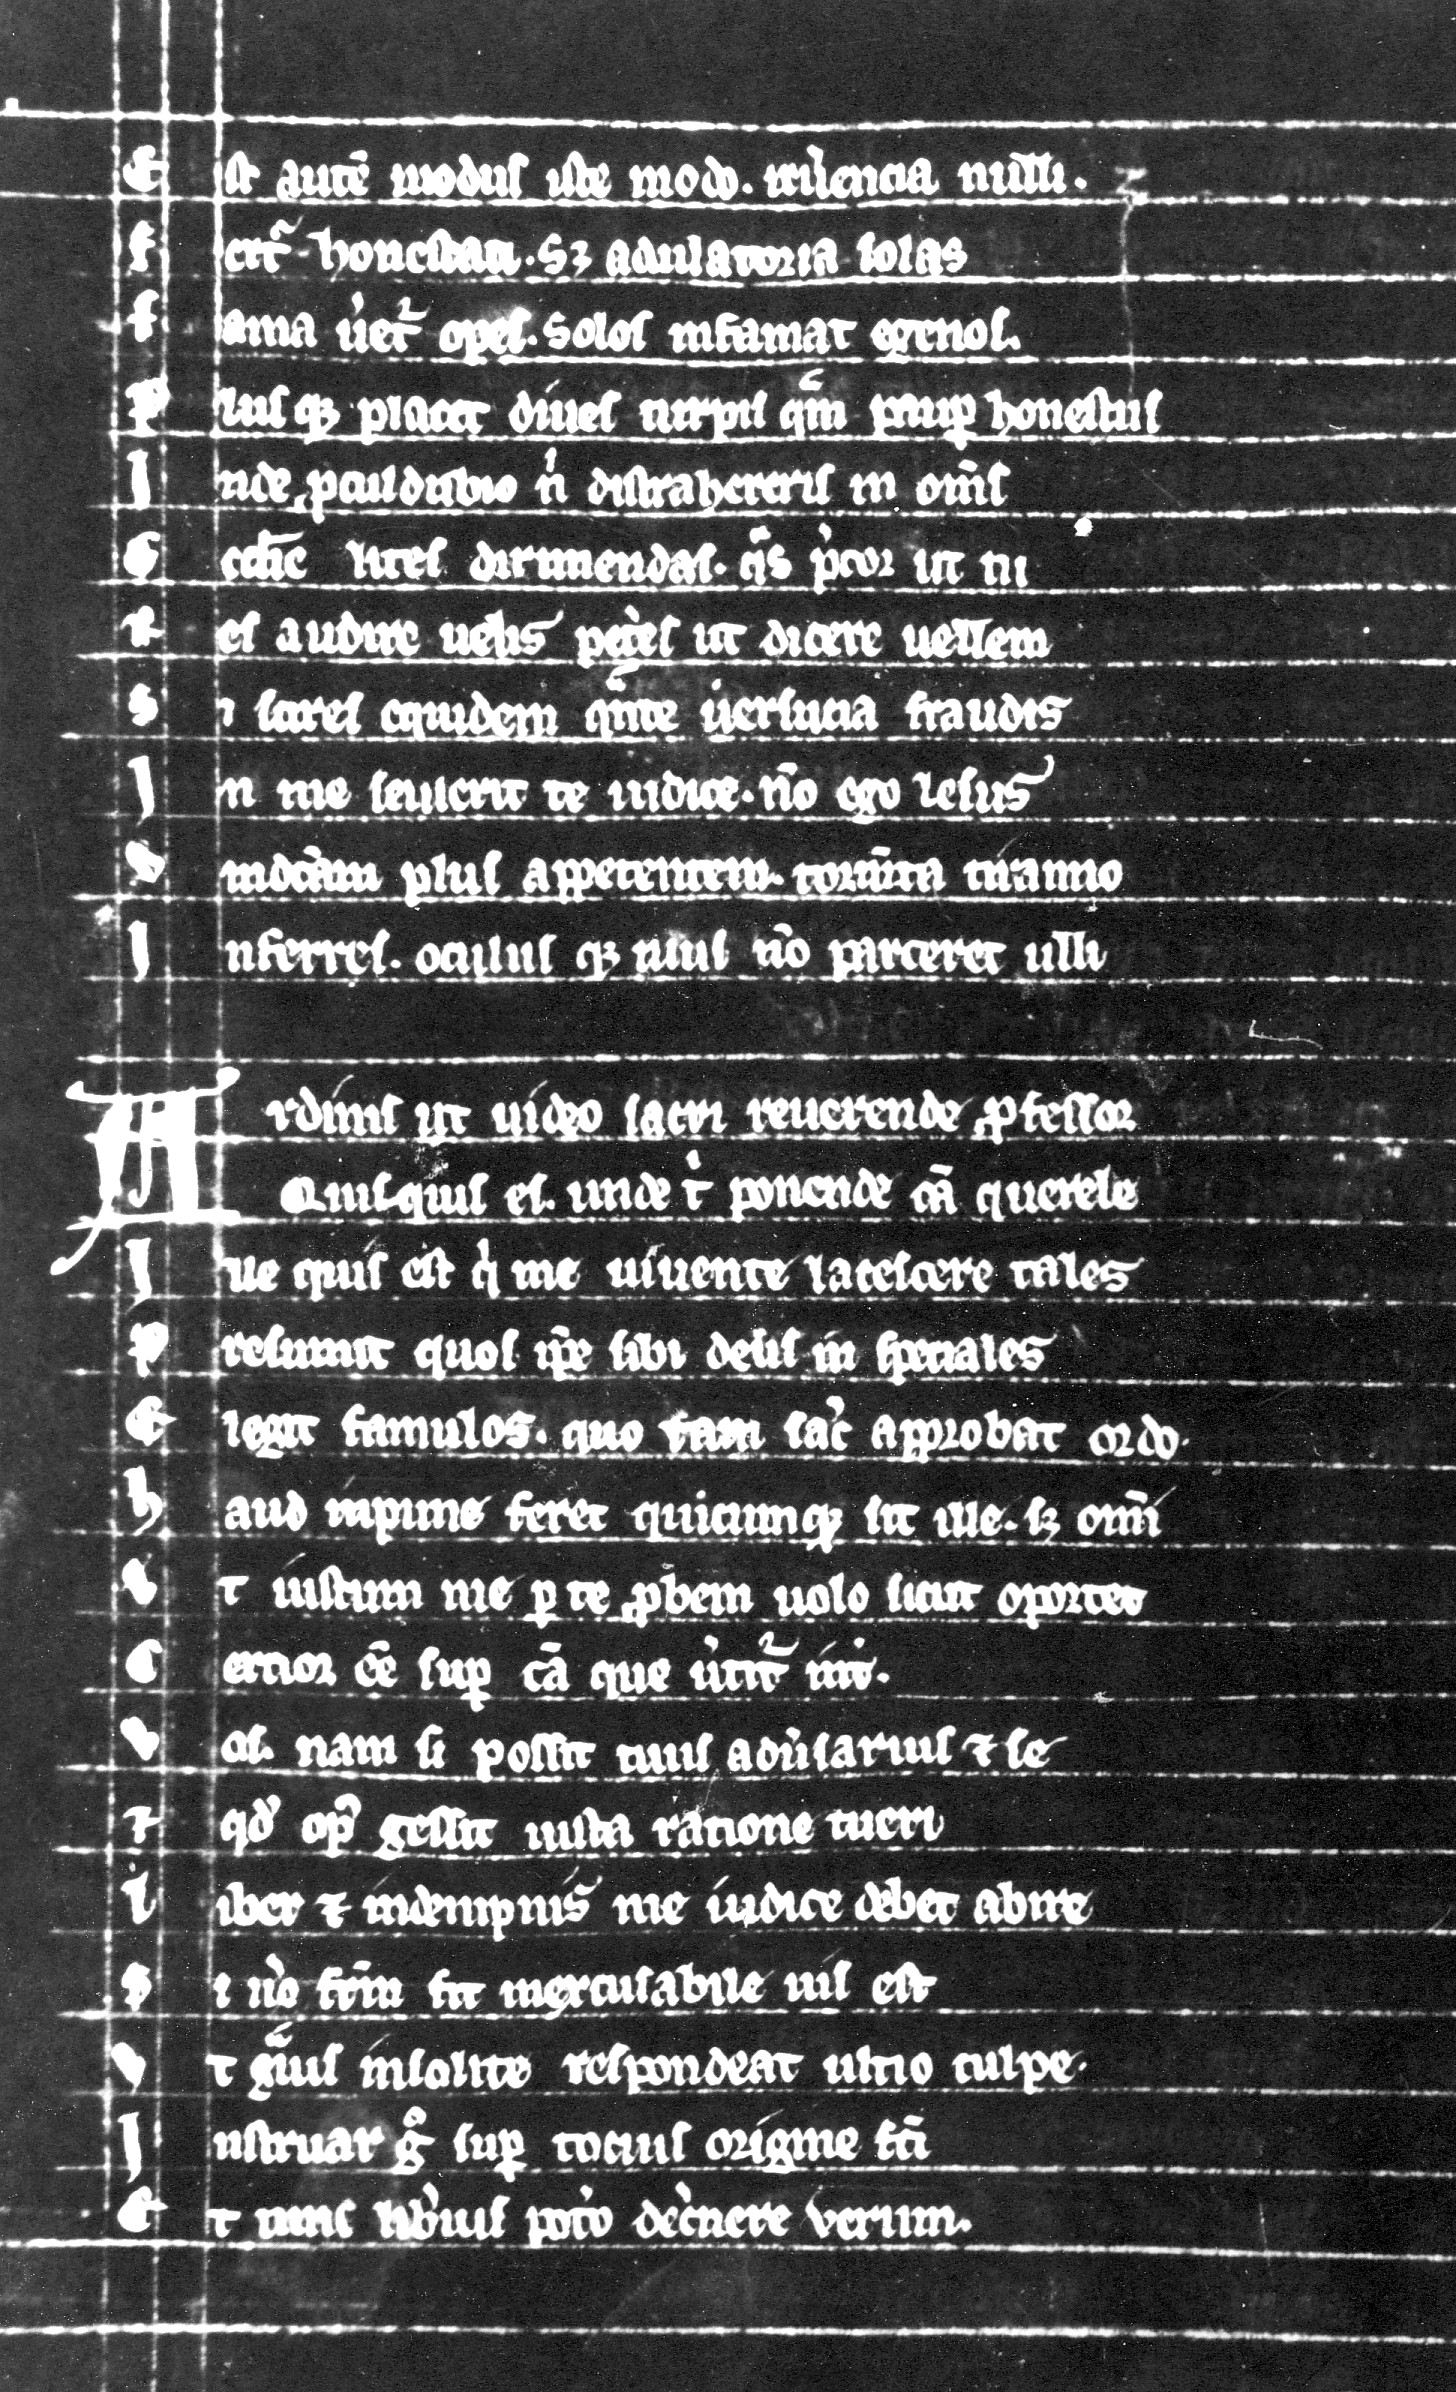 Est autē modus iste modo. reuͥencia nulli.
fertᷣ honestati. sꝫ adulatoria solas
fama u̓etᷣ opes. solos infamat egenos.
plus qꝫ placet díues turpis qͣm paup̱ honestus
Inde ꝓculdubio nͥ distrahereris in om̄s
Ecctie lites dirimendas. qͣs p̓cor ut tu
Res audire uelis pet̓es ut dicere uellem
Si scires equidem qͣnte u̓sucia fraudis
In me seuierit te iudice. nō ego lesus
Vindctām plus appetentem. torm̄ta tiranno
Inferres. oculus qꝫ tuus nō parceret ulli
Ardínis ut uídeo sacri reuerende ꝓfessor
Quisquis es. unde tͥ ponende cā querele
Iue quis est qͥ me uíuente lacescere tales
presumit quos ip̄e sibi deus in speciales
Elegit famulos. quo fam sac̓ approbat ordo.
haud ínpune feret quicumqꝫ sit ille. sꝫ om̄i
Vt iustum me ꝑ te ꝓbem uolo sicut oportet
Certior eē̄ sup̱ cā que u̓titᷣ int̓.
Vos. nam si possit tuus adu̓sarius ⁊ se
⁊ qd̓ op̓ gessit iusta ratione tueri
liber ⁊ índempnis me iudice debet abire
Si u̓o fcm̄ sit inexcusabile uis est
Vt qͣuis ínsolite respondeat ultio culpe.
Instruar gͦ sup̱ tocius orígine fcī
Et tunc lib̓ius pot̓o dec̓nere verum.